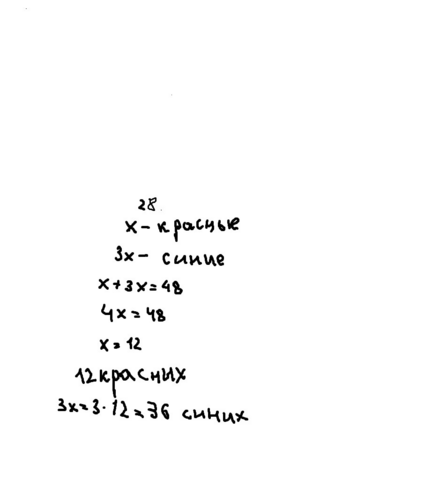 28.
х - красные
3х - синие
х+3х=48
4х=48
х=12
12 красных
3х=3·12=36 синих